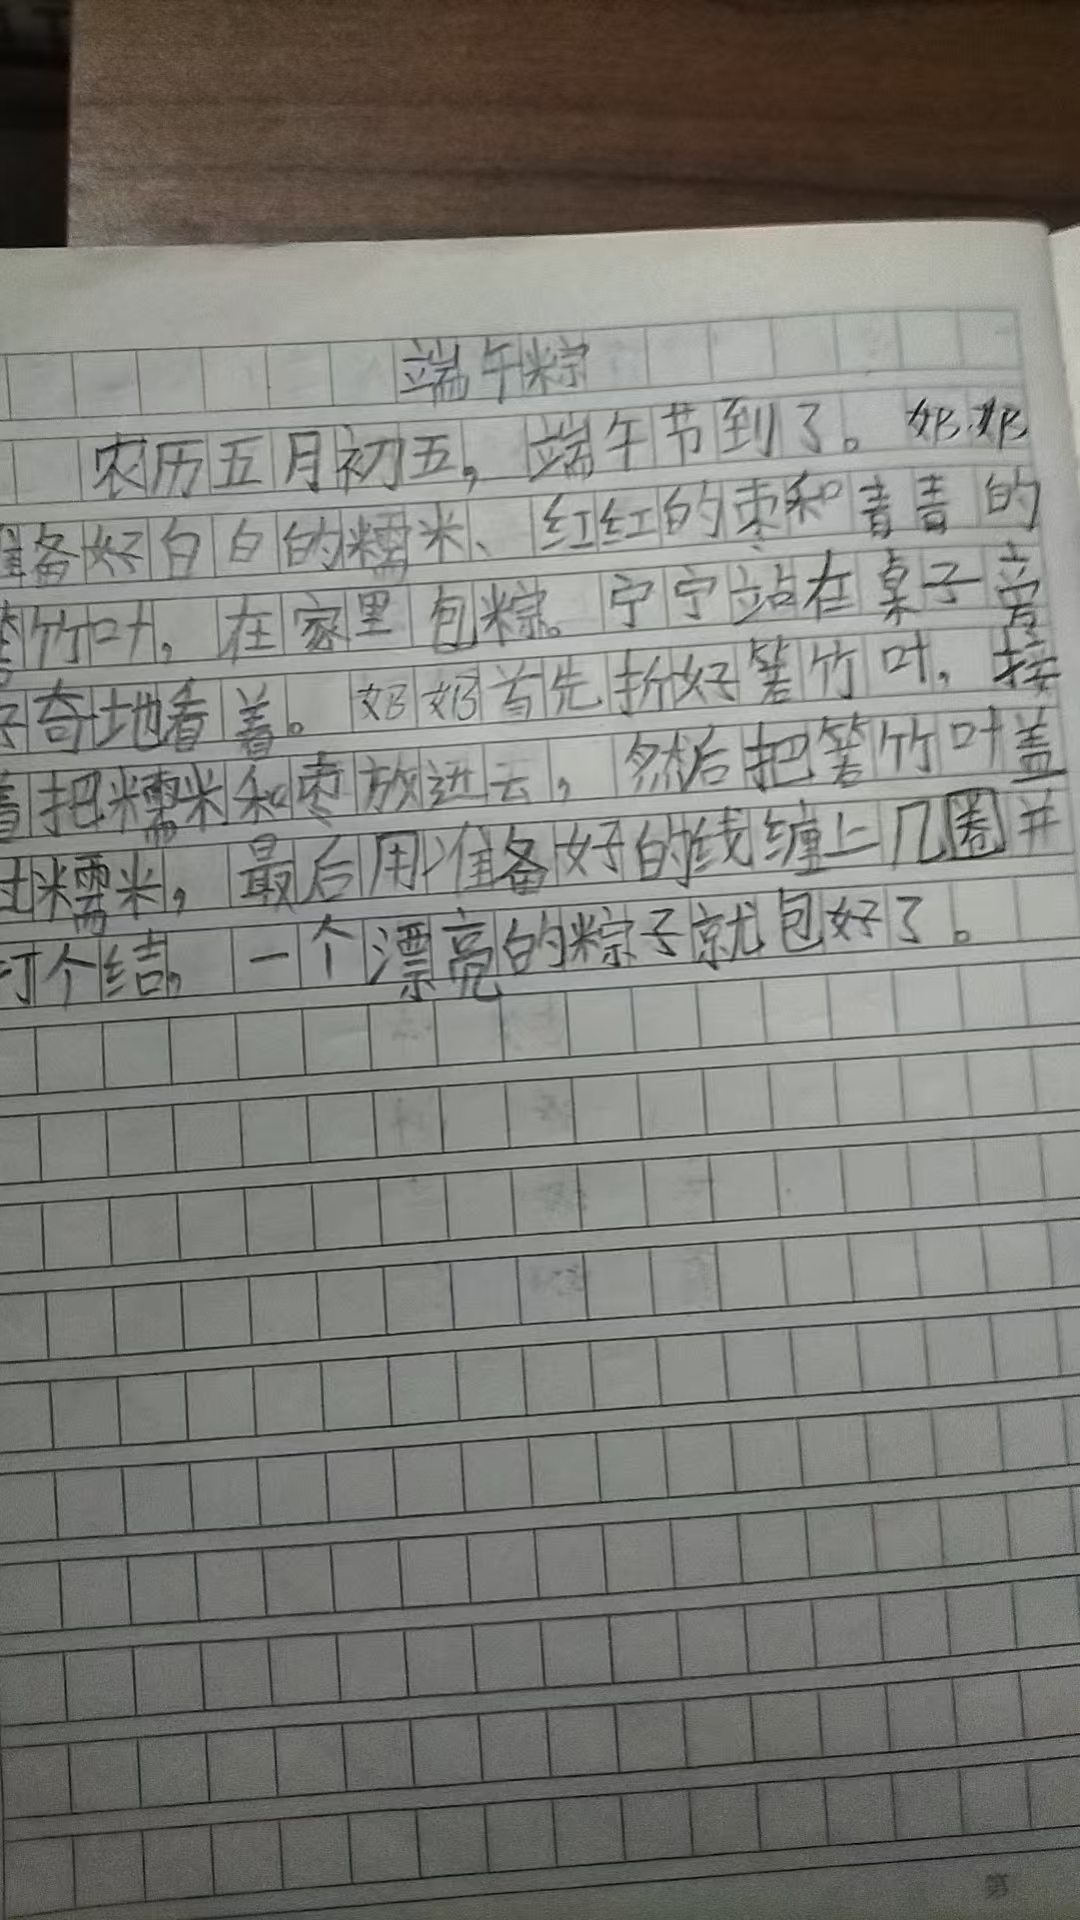 端午粽
农历五月初五，端午节到了。奶奶
准备好白白的糯米、红红的枣和青青的
箬竹叶，在家里包粽。宁宁站在桌子旁
好奇地看着。奶奶首先折好箬竹叶，接
着把糯米和枣放进去，然后把箬竹叶盖
过糯米，最后用准备好的线缠上几圈并
打个结，一个漂亮的粽子就包好了。
第